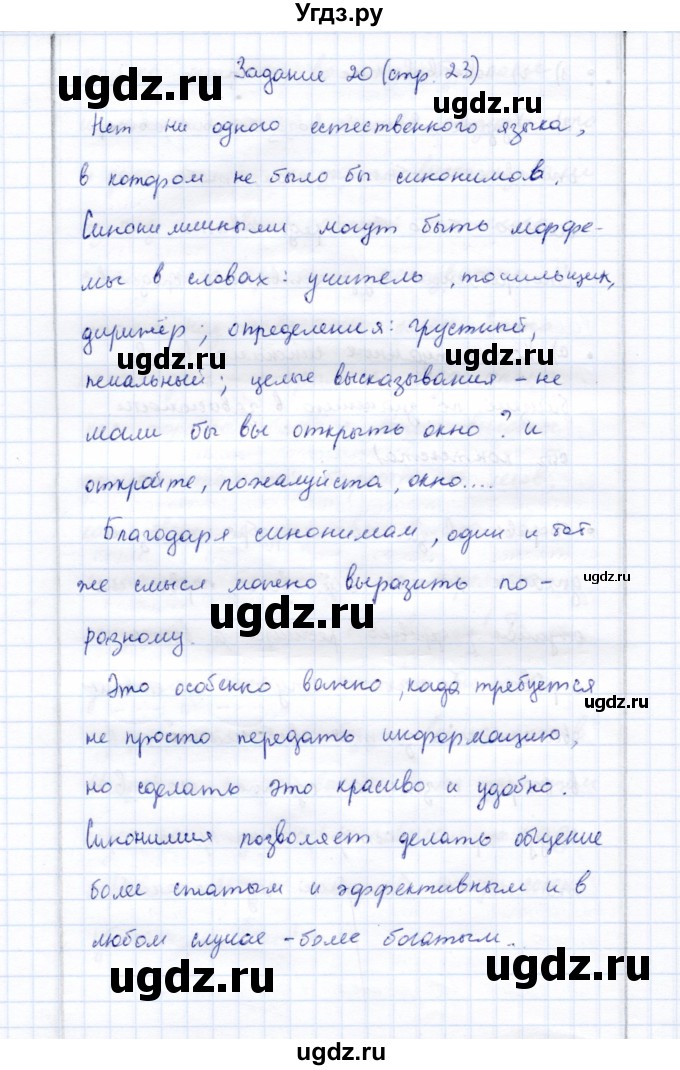 Угдз.ру
Задание 20 (стр. 23)
ugdz.ru ugdz.ru
Нет ни одного естественного языка,
в котором не было бы синонимов.
Синонимичными могут быть морфе-
мы в словах: учитель, точильщик,
дирижёр; определения: грустный,
ugdz.ru ugdz.ru
печальный; целые высказывания - не
могли бы вы открыть окно? и
откройте, пожалуйста, окно....
Благодаря синонимам, один и тот
же смысл можно выразить по-
ugdz.ru
ugdz.ru
разному.
Это особенно важно, когда требуется
ugdz.ru
не просто передать информацию,
но сделать это красиво и удобно.
Синонимия позволяет делать общение
более сжатым и эффективным и в
любом случае - более богатым.
ugdz.ru ugdz.ru
ugdz.ru